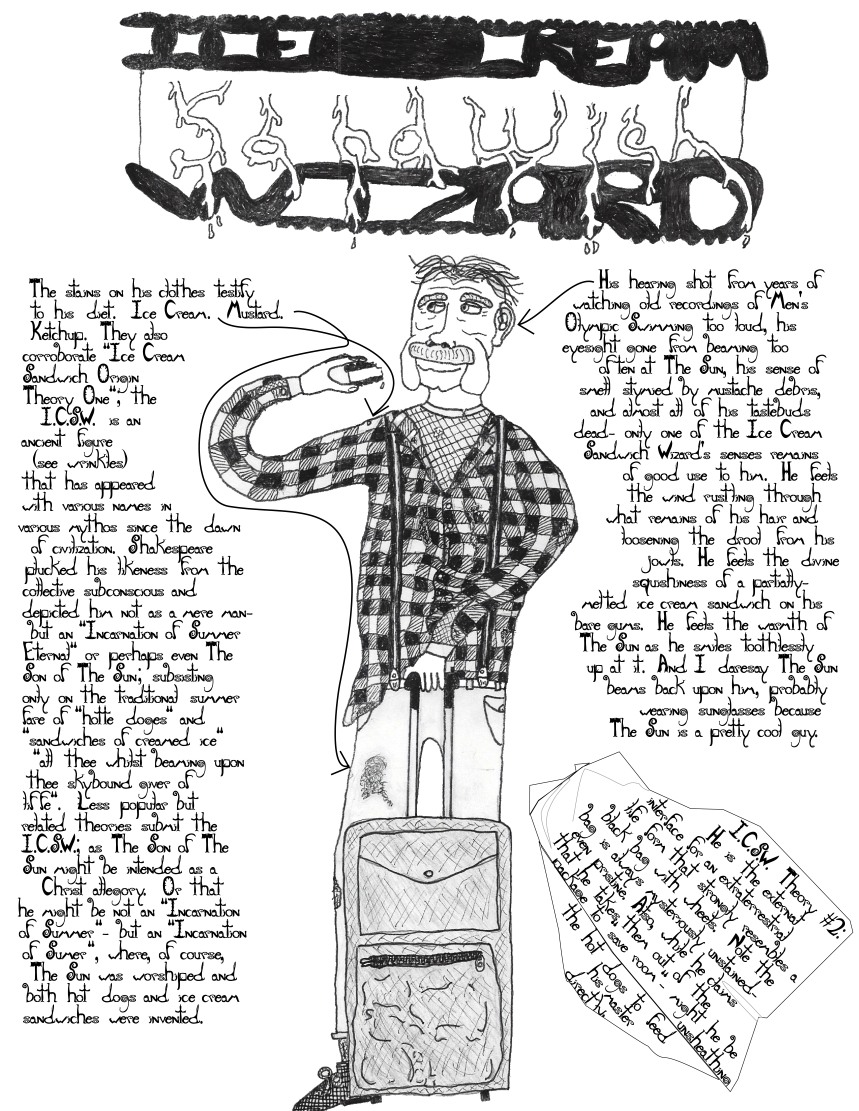 ICE CREAM
Sandwich
WIZARD
The stains on his clothes testify
to his diet. Ice Cream. Mustard.
Ketchup. They also
corroborate "Ice Cream
Sandwich Origin
Theory One"; the
I.C.S.W. is an
ancient figure
(see wrinkles)
that has appeared
with various names in
various mythos since the dawn
of civilization. Shakespeare
plucked his likeness from the
collective subconscious and
depicted him not as a mere man-
but an "Incarnation of Summer
Eternal" or perhaps even The
Son of The Sun; subsisting
only on the traditional summer
fare of "hotte doges" and
"sandwiches of creamed ice"
"all thee whilst beaming upon
thee skybound giver of
liffe". Less popular but
related theories submit the
I.C.S.W.: as The Son of The
Sun might be intended as a
Christ allegory. Or that
he might be not an "Incarnation
of Summer"- but an "Incarnation
of Sumer", where, of course,
The Sun was worshiped and
both hot dogs and ice cream
sandwiches were invented.
His hearing shot from years of
watching old recordings of Men's
Olympic Swimming too loud, his
eyesight gone from beaming too
often at The Sun, his sense of
smell stymied by mustache debris,
and almost all of his tastebuds
dead- only one of the Ice Cream
Sandwich Wizard's senses remains
of good use to him. He feels
the wind rustling through
what remains of his hair and
loosening the drool from his
jowls. He feels the divine
squishiness of a partially-
melted ice cream sandwich on his
bare gums. He feels the warmth of
The Sun as he smiles toothlessly
up at it. And I daresay The Sun
beams back upon him, probably
wearing sunglasses because
The Sun is a pretty cool guy.
I.C.S.W. Theory #2:
He is the external
interface for an extraterrestrial
life form that strongly resembles a
black bag with wheels. Note the
bag is always mysteriously unstained-
even pristine. Also, while he claims
that he takes them out of the
package to "save room"- might he be
unsheathing
the hot dogs to feed
his master
directly.